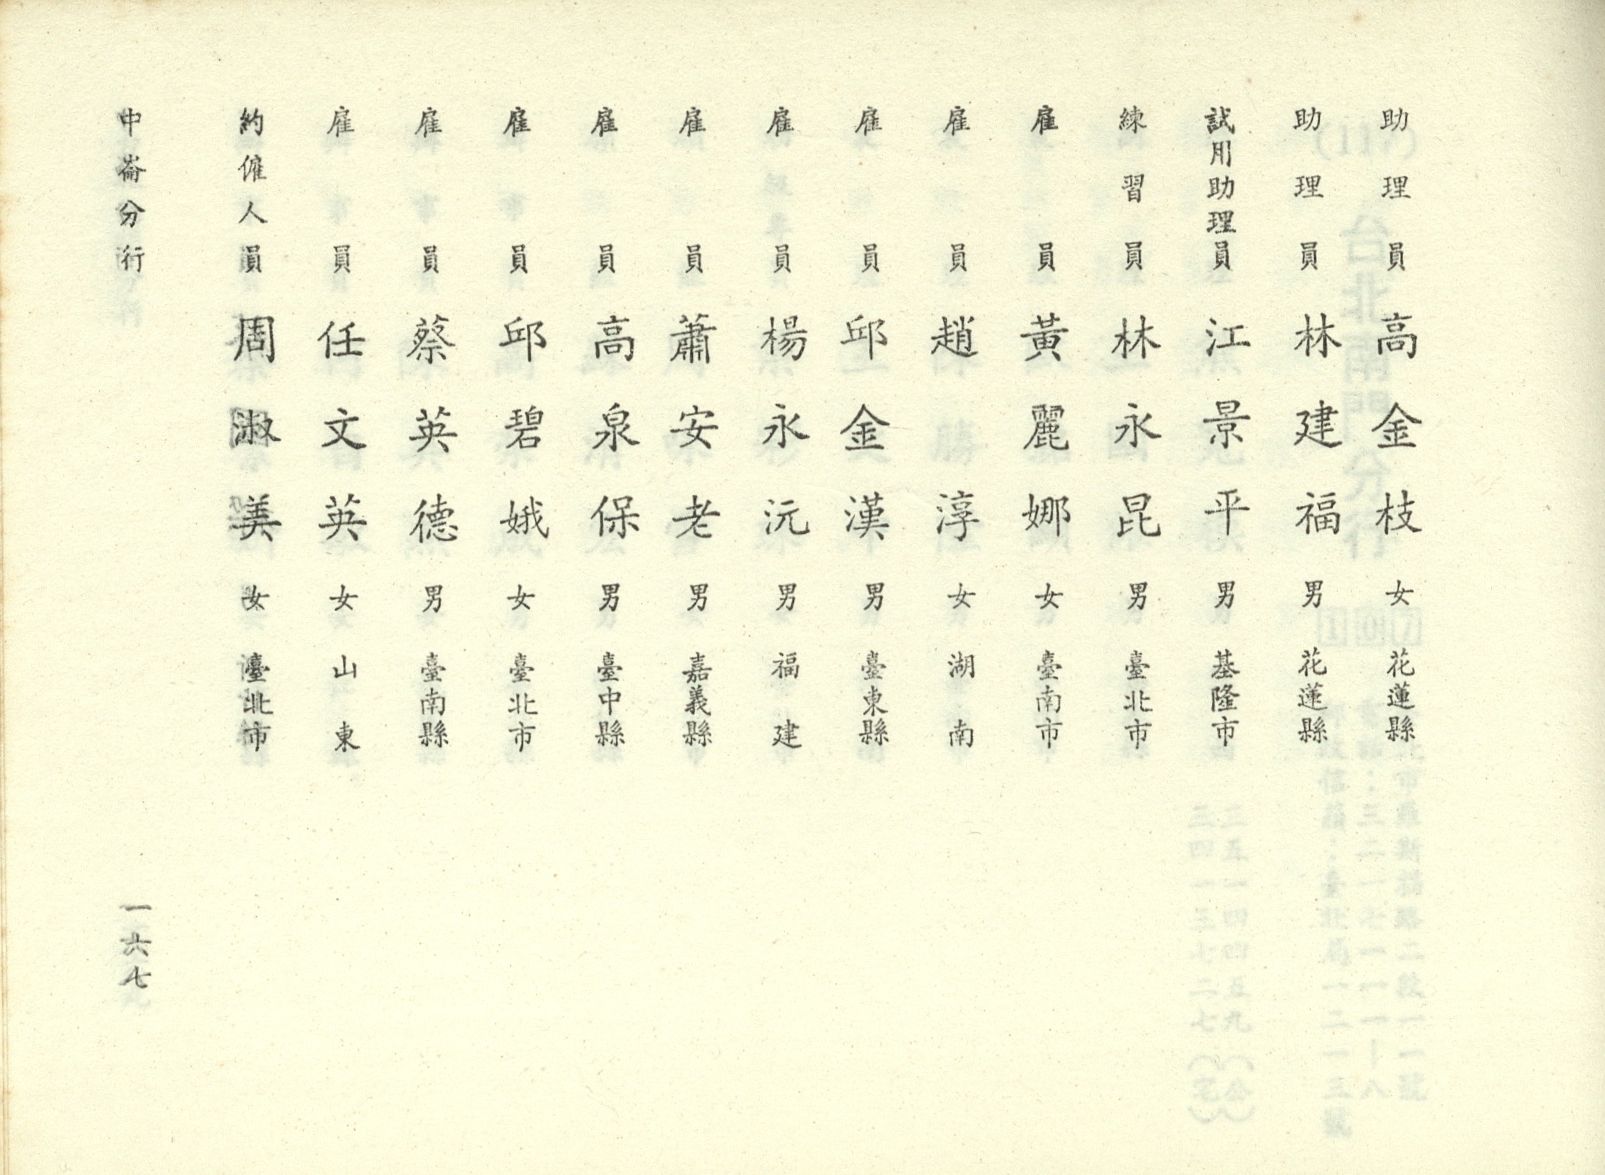 助理員 高金枝 女 花蓮縣
助理員 林建福 男 花蓮縣
試用助理員 江景平 男 基隆市
練習員 林永昆 男 臺北市
雇員 黃麗娜 女 臺南市
雇員 趙淳 女 湖南
雇員 邱金漢 男 臺東縣
雇員 楊永沅 男 福建
雇員 蕭安老 男 嘉義縣
雇員 高泉保 男 臺中縣
雇員 邱碧娥 女 臺北市
雇員 蔡英德 男 臺南縣
雇員 任文英 女 山東
約僱人員 周淑美 女 臺北市
中崙分行 一六七